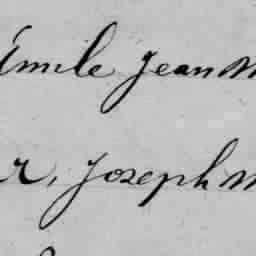 Emile Jean M
r, Joseph M